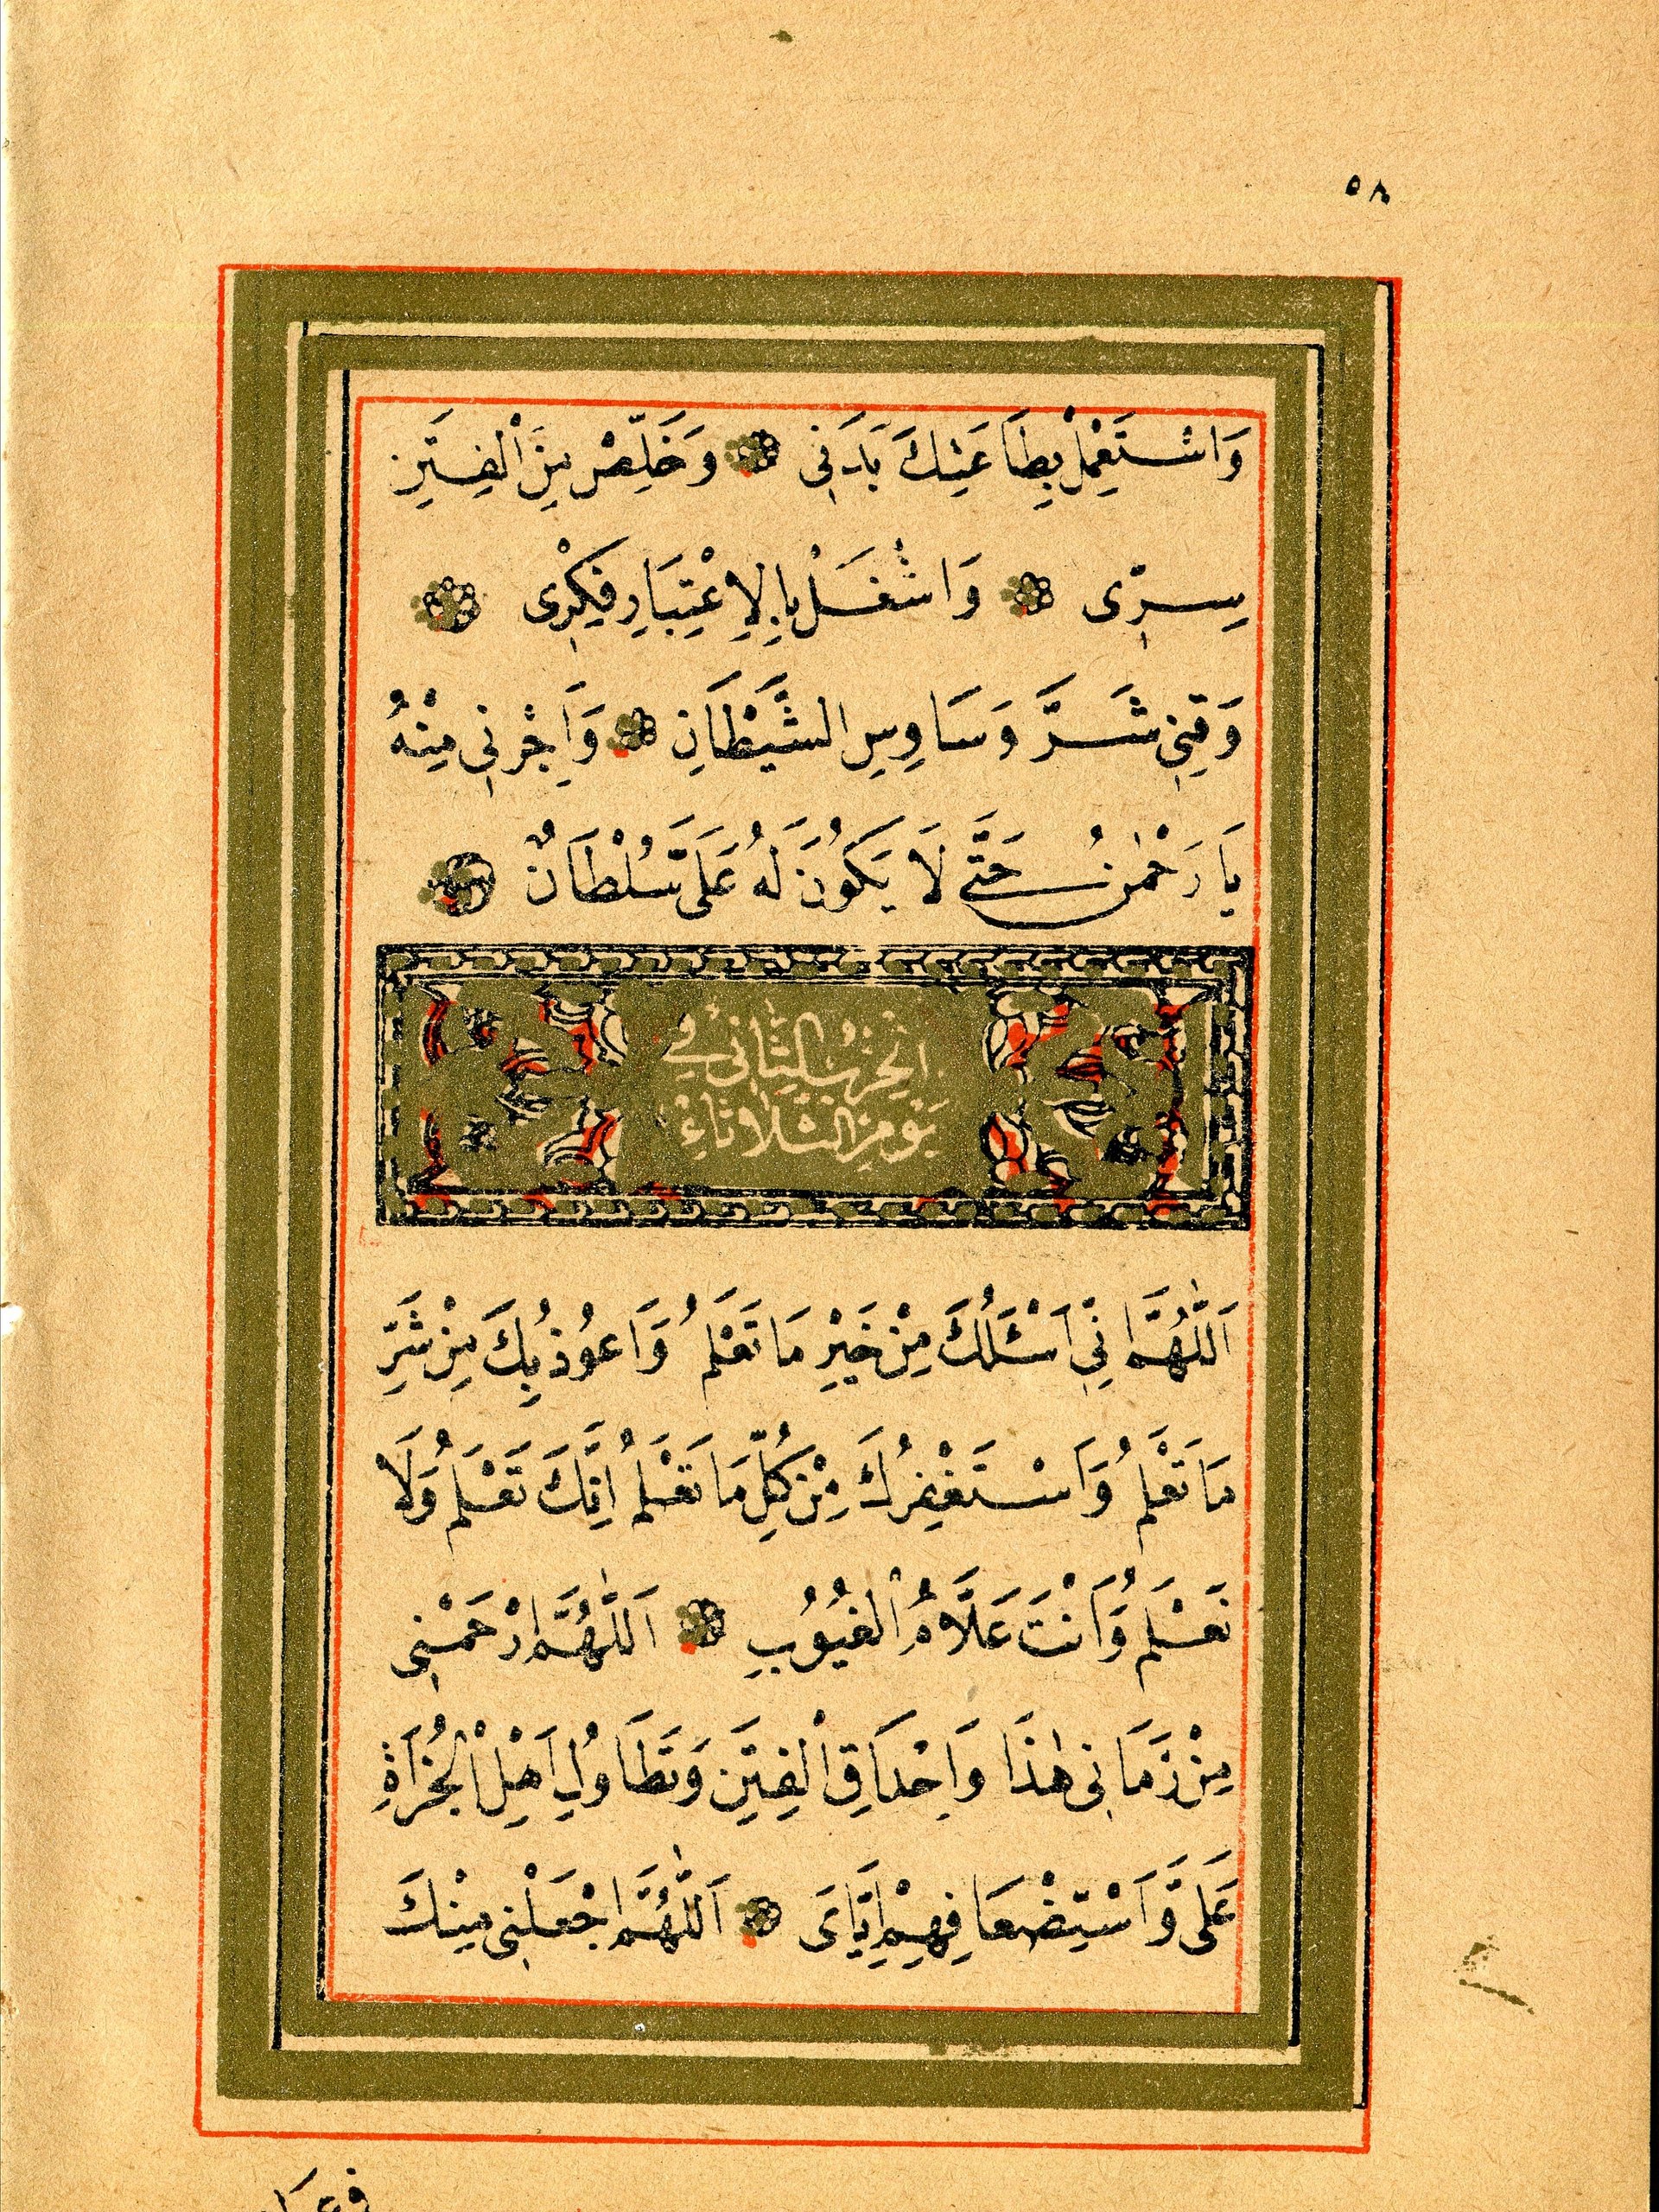 ٥٨
وَاسْتَعْمِلْ بِطَاعَتِكَ بَدَنِي وَخَلِّصْ مِنَ الْفِتَنِ
سِرِّى وَاشْغَلْ بِالْاِعْتِبَارِ فِكْرِى
وَقِنِى شَرَّ وَسَاوِسِ الشَّيْطَانِ وَاَجِرْنِى مِنْهُ
يَا رَحْمٰنُ حَتَّى لَا يَكُونَ لَهُ عَلَىَّ سُلْطَانٌ
اَلْحِزْبُ الثَّانِى فِى
يَوْمِ الثَّلَاثَاءِ
اَللّٰهُمَّ اِنِّى اَسْئَلُكَ مِنْ خَيْرِ مَا تَعْلَمُ وَاَعُوذُ بِكَ مِنْ شَرِّ
مَا تَعْلَمُ وَاَسْتَغْفِرُكَ مِنْ كُلِّ مَا تَعْلَمُ اِنَّكَ تَعْلَمُ وَلَا
نَعْلَمُ وَاَنْتَ عَلَّامُ الْغُيُوبِ اَللّٰهُمَّ ارْحَمْنِى
مِنْ زَمَانِى هٰذَا وَاِحْدَاقِ الْفِتَنِ وَتَطَاوُلِ اَهْلِ الْجُرْاَةِ
عَلَىَّ وَاسْتِضْعَافِهِمْ اِيَّاىَ اَللّٰهُمَّ اجْعَلْنِى مِنْكَ